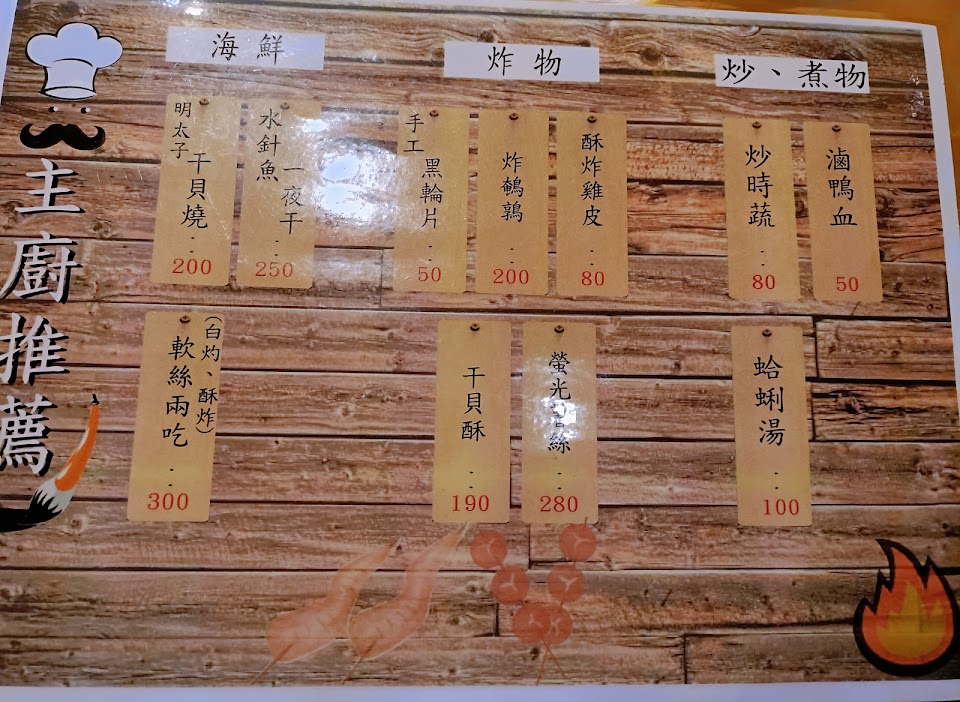 主廚推薦
海鮮
明太子干貝燒 200
水針魚一夜干 250
軟絲兩吃(白灼、酥炸) 300
炸物
手工黑輪片 50
炸鵪鶉 200
酥炸雞皮 80
干貝酥 190
螢光 絲 280
炒、煮物
炒時蔬 80
滷鴨血 50
蛤蜊湯 100